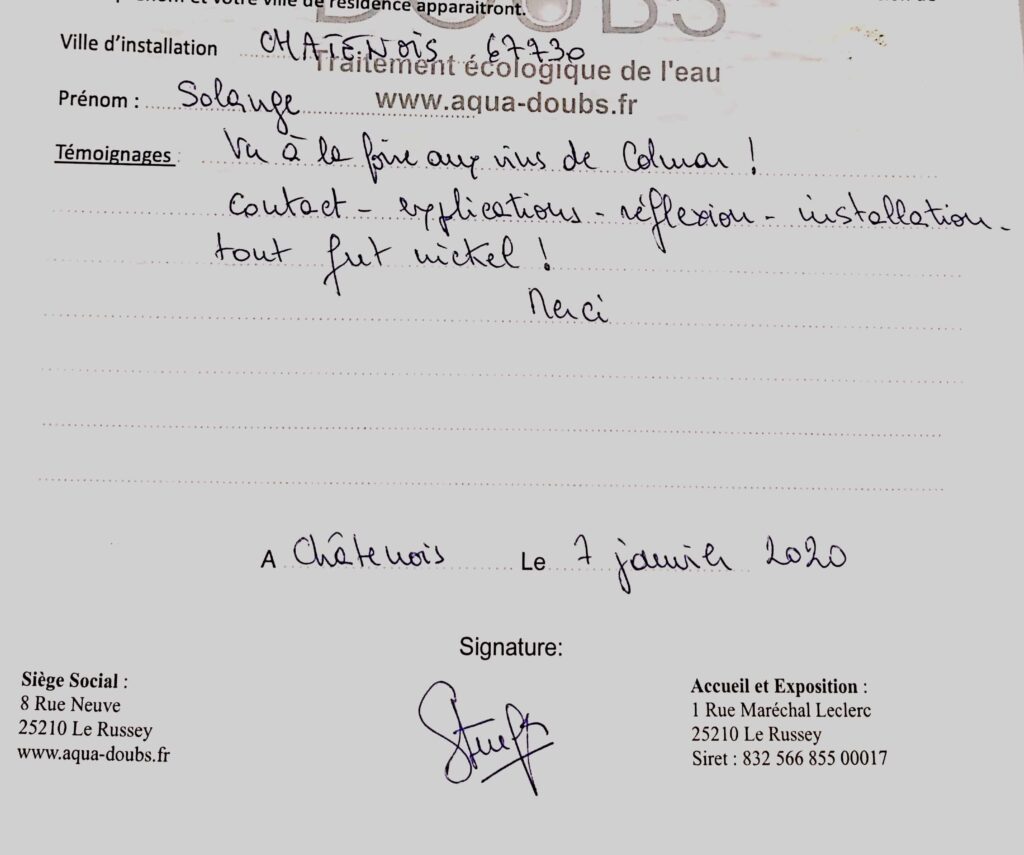 prénom et votre ville de résidence apparaitront.
DOUBS
Ville d'installation CHATENOIS 67730
Traitement écologique de l'eau
Prénom : Solange www.aqua-doubs.fr
Témoignages : Vu à la foire aux vins de Colmar !
Contact - explications - réflexion - installation -
tout fut nickel !
Merci
A Châtenois Le 7 janvier 2020
Signature:
Siège Social :
8 Rue Neuve
25210 Le Russey
www.aqua-doubs.fr
Accueil et Exposition :
1 Rue Maréchal Leclerc
25210 Le Russey
Siret : 832 566 855 00017